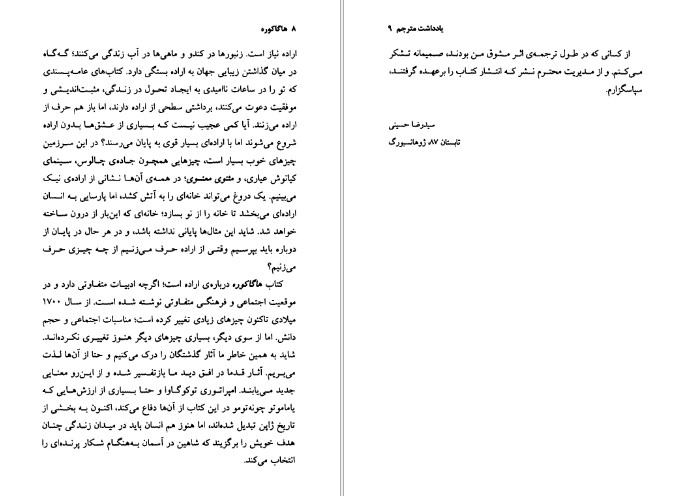 ۸ هاگاکوره
اراده نیاز است. زنبورها در کندو و ماهی‌ها در آب زندگی می‌کنند؛ گه‌گاه
در میان گذاشتن زیبایی جهان به اراده بستگی دارد. کتاب‌های عامه‌پسندی
که تو را در ساعات ناامیدی به ایجاد تحول در زندگی، مثبت‌اندیشی و
موفقیت دعوت می‌کنند، برداشتی سطحی از اراده دارند، اما باز هم حرف از
اراده می‌زنند. آیا کمی عجیب نیست که بسیاری از عشق‌ها بدون اراده
شروع می‌شوند اما با اراده‌ای بسیار قوی به پایان می‌رسند؟ در این سرزمین
چیزهای خوب بسیار است، چیزهایی همچون جاده‌ی چالوس، سینمای
کیانوش عیاری، و مثنوی معنوی؛ در همه‌ی آن‌ها نشانی از اراده‌ی نیک
می‌بینیم. یک دروغ می‌تواند خانه‌ای را به آتش کشد، اما پارسایی به انسان
اراده‌ای می‌بخشد تا خانه را از نو بسازد؛ خانه‌ای که این‌بار از درون ساخته
خواهد شد. شاید این مثال‌ها پایانی نداشته باشد، و در هر حال در پایان از
دوباره باید بپرسیم وقتی از اراده حرف می‌زنیم از چه چیزی حرف
می‌زنیم؟
کتاب هاگاکوره درباره‌ی اراده است؛ اگرچه ادبیات متفاوتی دارد و در
موقعیت اجتماعی و فرهنگی متفاوتی نوشته شده است. از سال ۱۷۰۰
میلادی تاکنون چیزهای زیادی تغییر کرده است؛ مناسبات اجتماعی و حجم
دانش. اما از سوی دیگر، بسیاری چیزهای دیگر هنوز تغییری نکرده‌اند.
شاید به همین خاطر ما آثار گذشتگان را درک می‌کنیم و حتا از آن‌ها لذت
می‌بریم. آثار قدما در افق دید ما بازتفسیر شده و از این‌رو معنایی
جدید می‌یابند. امپراتوری توکوگاوا و حتا بسیاری از ارزش‌هایی که
یاماموتو چونه‌تومو در این کتاب از آن‌ها دفاع می‌کند، اکنون به بخشی از
تاریخ ژاپن تبدیل شده‌اند، اما هنوز هم انسان باید در میدان زندگی چنان
هدف خویش را برگزیند که شاهین در آسمان به‌هنگام شکار پرنده‌ای را
انتخاب می‌کند.
یادداشت مترجم ۹
از کسانی که در طول ترجمه‌ی اثر مشوق من بودند، صمیمانه تشکر
می‌کنم. و از مدیریت محترم نشر که انتشار کتاب را برعهده گرفتند،
سپاسگزارم.
سیدرضا حسینی
تابستان ۸۷، ژوهانسبورگ